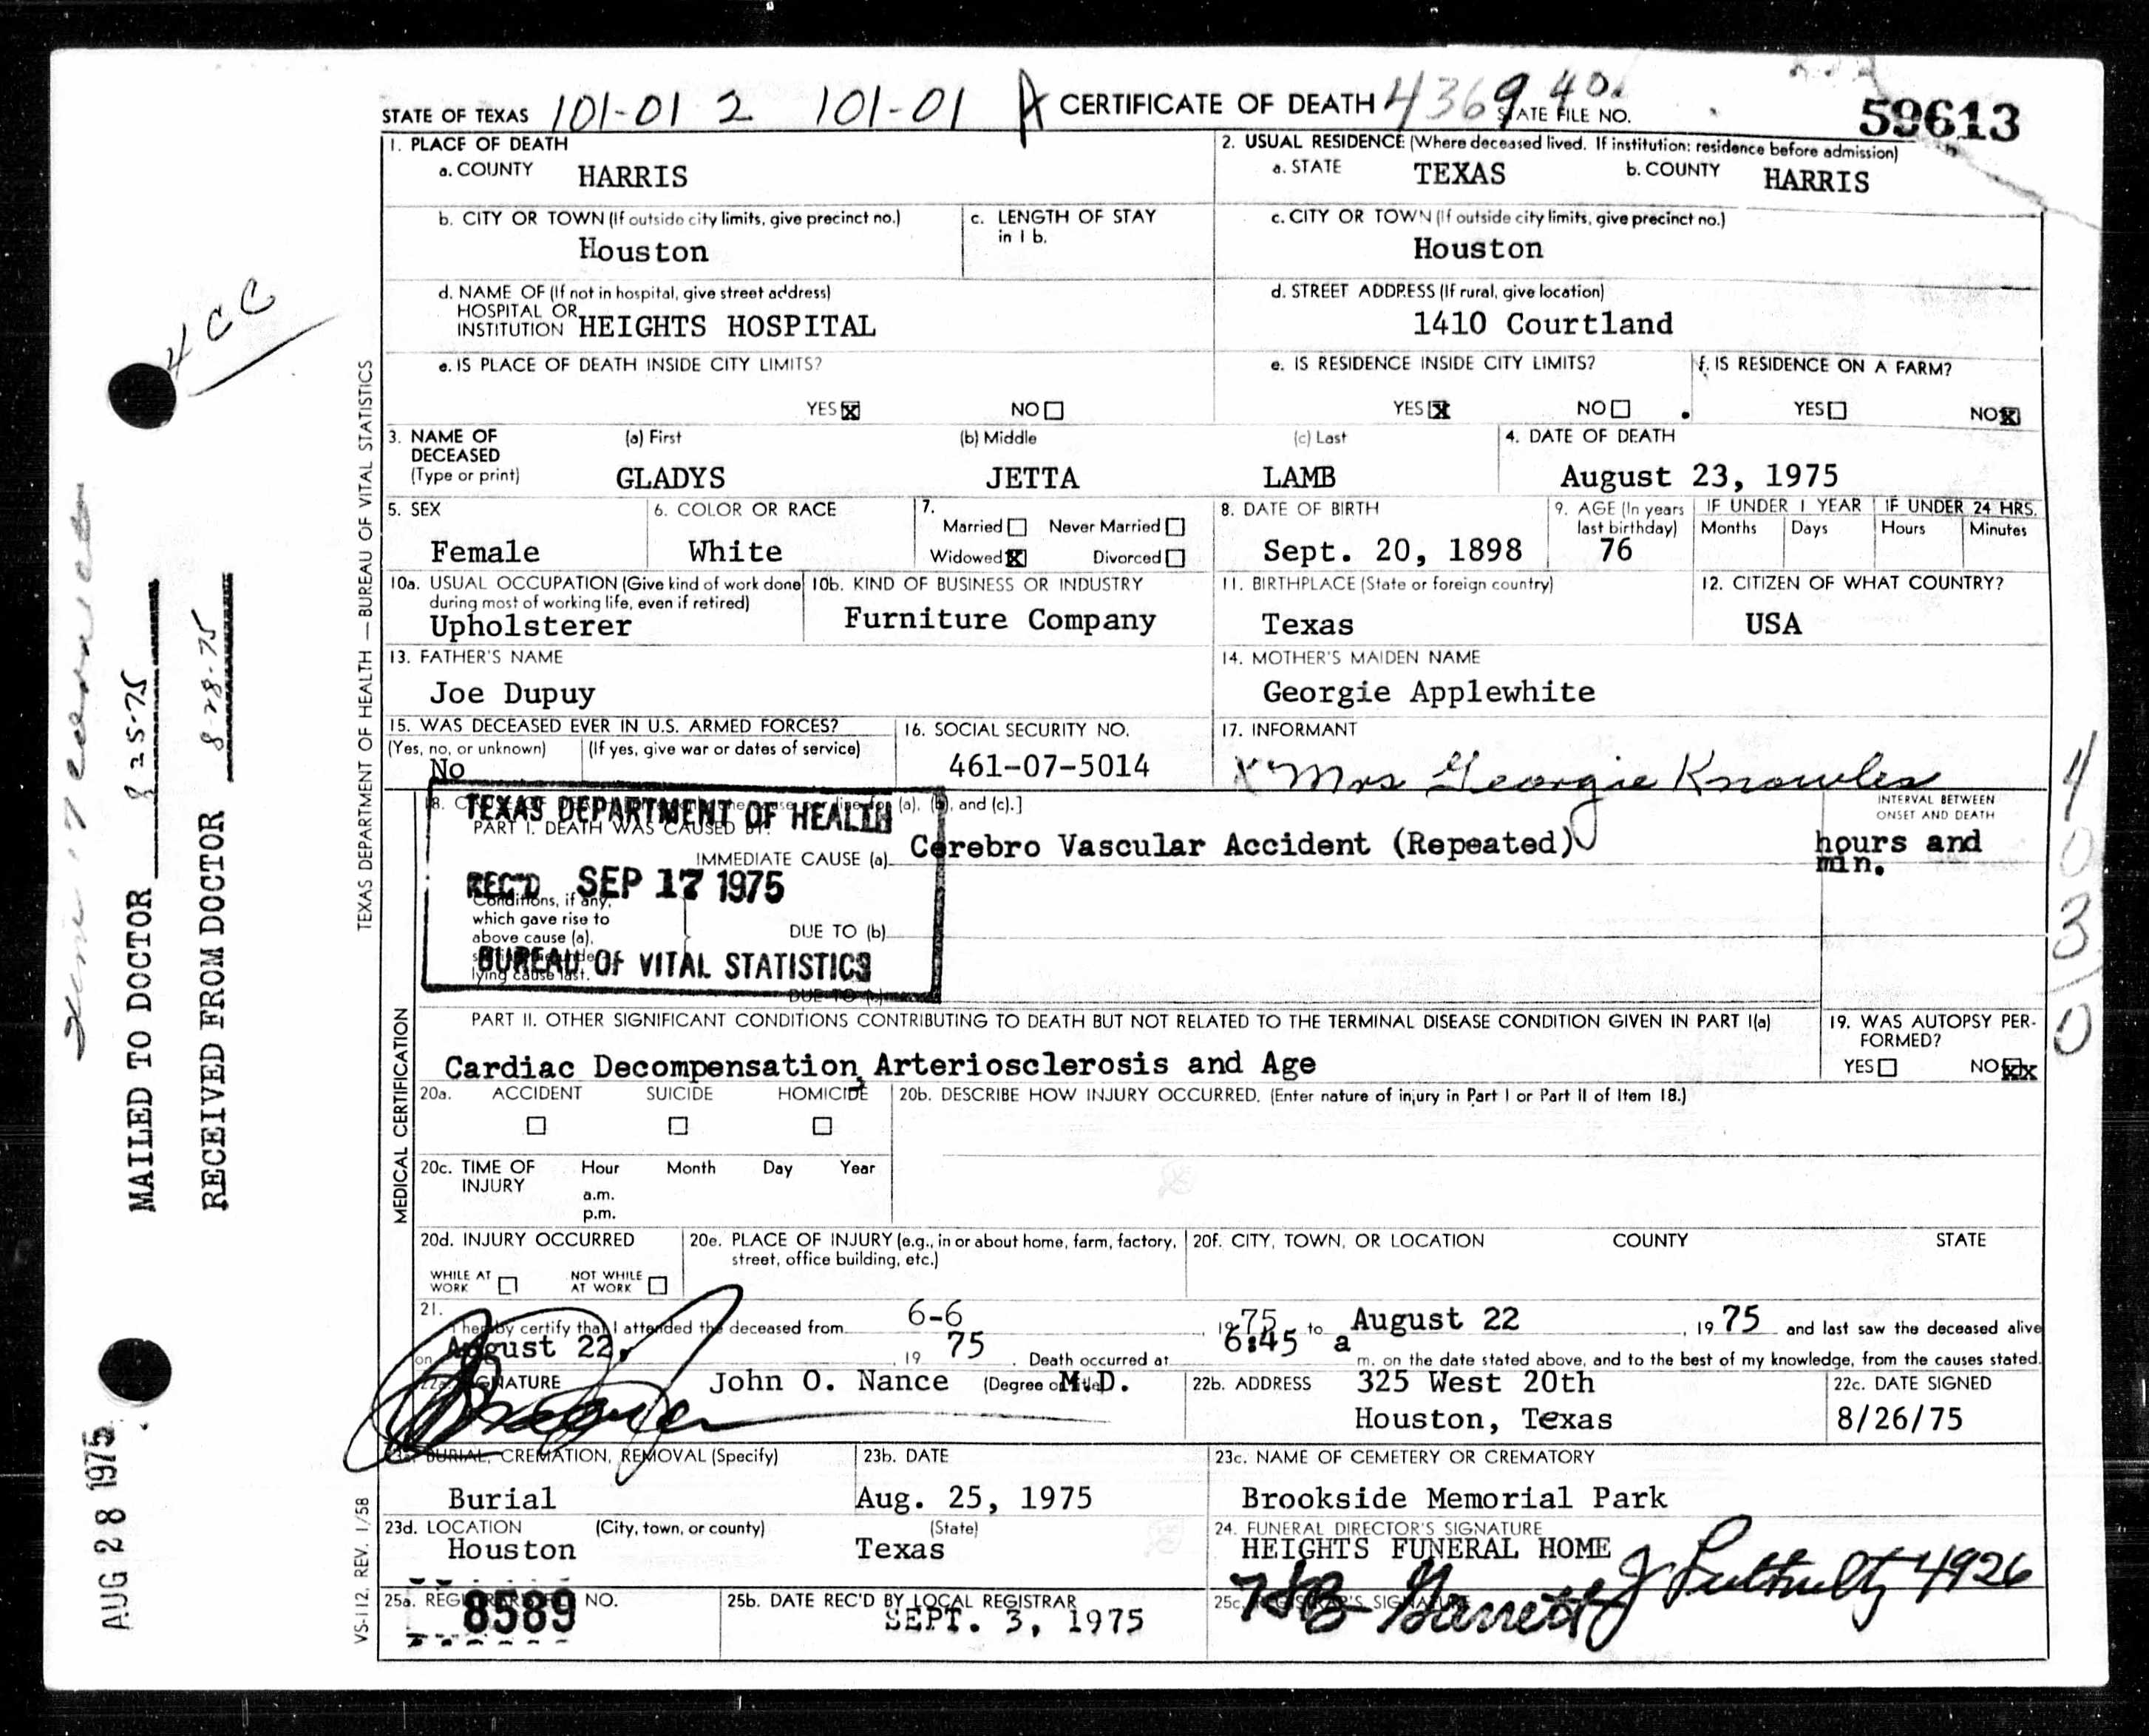 STATE OF TEXAS 101-01 2 101-01 A CERTIFICATE OF DEATH 4369 40. STATE FILE NO. 59613
1. PLACE OF DEATH
a. COUNTY HARRIS
b. CITY OR TOWN (If outside city limits, give precinct no.)
Houston
c. LENGTH OF STAY
in 1 b.
d. NAME OF (If not in hospital, give street address)
HOSPITAL OR
INSTITUTION HEIGHTS HOSPITAL
e. IS PLACE OF DEATH INSIDE CITY LIMITS?
YES X NO
2. USUAL RESIDENCE (Where deceased lived. If institution: residence before admission)
a. STATE TEXAS b. COUNTY HARRIS
c. CITY OR TOWN (If outside city limits, give precinct no.)
Houston
d. STREET ADDRESS (If rural, give location)
1410 Courtland
e. IS RESIDENCE INSIDE CITY LIMITS?
YES X NO
f. IS RESIDENCE ON A FARM?
YES NO X
3. NAME OF
DECEASED
(Type or print)
(a) First (b) Middle (c) Last
GLADYS JETTA LAMB
4. DATE OF DEATH
August 23, 1975
5. SEX
Female
6. COLOR OR RACE
White
7.
Married Never Married
Widowed X Divorced
8. DATE OF BIRTH
Sept. 20, 1898
9. AGE (In years
last birthday)
76
IF UNDER 1 YEAR
Months Days
IF UNDER 24 HRS.
Hours Minutes
10a. USUAL OCCUPATION (Give kind of work done
during most of working life, even if retired)
Upholsterer
10b. KIND OF BUSINESS OR INDUSTRY
Furniture Company
11. BIRTHPLACE (State or foreign country)
Texas
12. CITIZEN OF WHAT COUNTRY?
USA
13. FATHER'S NAME
Joe Dupuy
14. MOTHER'S MAIDEN NAME
Georgie Applewhite
15. WAS DECEASED EVER IN U.S. ARMED FORCES?
(Yes, no, or unknown) (If yes, give war or dates of service)
No
16. SOCIAL SECURITY NO.
461-07-5014
17. INFORMANT
X Mrs Georgie Knowles
18. (a), (b), and (c).]
PART I. DEATH WAS CAUSED BY:
IMMEDIATE CAUSE (a) Cerebro Vascular Accident (Repeated)
INTERVAL BETWEEN
ONSET AND DEATH
hours and
min.
Conditions, if any,
which gave rise to
above cause (a),
lying cause last.
DUE TO (b)
DUE TO
TEXAS DEPARTMENT OF HEALTH
REC'D SEP 17 1975
BUREAU OF VITAL STATISTICS
PART II. OTHER SIGNIFICANT CONDITIONS CONTRIBUTING TO DEATH BUT NOT RELATED TO THE TERMINAL DISEASE CONDITION GIVEN IN PART I(a)
Cardiac Decompensation, Arteriosclerosis and Age
19. WAS AUTOPSY PER-
FORMED?
YES NO XX
20a. ACCIDENT SUICIDE HOMICIDE
20b. DESCRIBE HOW INJURY OCCURRED. (Enter nature of injury in Part I or Part II of Item 18.)
20c. TIME OF
INJURY
Hour Month Day Year
a.m.
p.m.
20d. INJURY OCCURRED
WHILE AT
WORK
NOT WHILE
AT WORK
20e. PLACE OF INJURY (e.g., in or about home, farm, factory,
street, office building, etc.)
20f. CITY, TOWN, OR LOCATION COUNTY STATE
21.
I hereby certify that I attended the deceased from 6-6, 1975 to August 22, 19 75 and last saw the deceased alive
on August 22, 19 75. Death occurred at 6:45 a m. on the date stated above, and to the best of my knowledge, from the causes stated.
22a. SIGNATURE John O. Nance (Degree or title) M.D.
22b. ADDRESS 325 West 20th
Houston, Texas
22c. DATE SIGNED
8/26/75
23a. BURIAL, CREMATION, REMOVAL (Specify)
Burial
23b. DATE
Aug. 25, 1975
23c. NAME OF CEMETERY OR CREMATORY
Brookside Memorial Park
23d. LOCATION (City, town, or county) (State)
Houston Texas
24. FUNERAL DIRECTOR'S SIGNATURE
HEIGHTS FUNERAL HOME
4926
25a. REGISTRAR'S NO.
8589
25b. DATE REC'D BY LOCAL REGISTRAR
SEPT. 3, 1975
25c. REGISTRAR'S SIGNATURE
TEXAS DEPARTMENT OF HEALTH — BUREAU OF VITAL STATISTICS
MEDICAL CERTIFICATION
VS-112. REV. 1/58
MAILED TO DOCTOR 8-25-75
RECEIVED FROM DOCTOR 8-28-75
AUG 28 1975
4
0
3
0